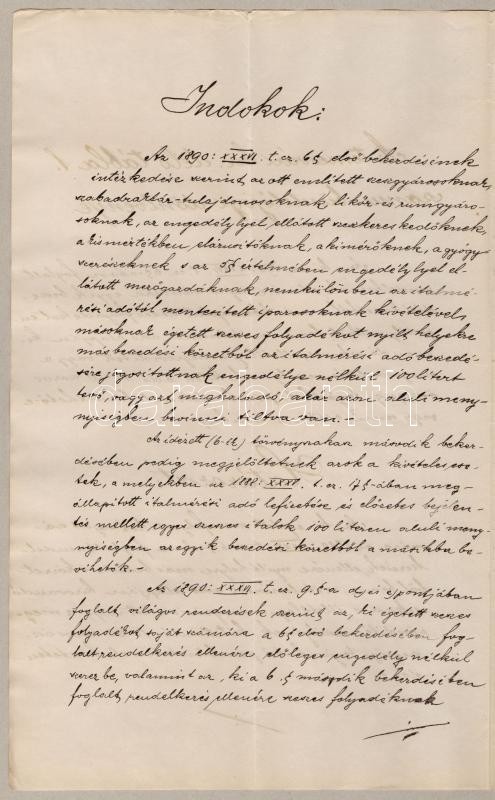 Indokok:
Az 1890: XXXVI. t. cz. 6§ első bekezdésének
intézkedése szerint az ott említett szeszgyárosoknak,
szabadraktár-tulajdonosoknak likőr- és rumgyáro-
soknak, az engedélylyel ellátott szeszkereskedőknek,
a kismértékben elárusitóknak, a kimérőknek, a gyógy-
szerészeknek s az 5§ értelmében engedélylyel el-
látott mezőgazdáknak, nemkülönben az italmé-
rési adótól mentesitett iparosoknak kivételével,
másoknak égetett szeszes folyadékot nyilt helyekre
más beszedési körzetből az italmérési adó beszedé-
sére jogositottnak engedélye nélkül 100 litert
tevő, vagy azt meghaladó, akár azon aluli meny-
nyiségben bevinni tiltva van.-
Az idézett (6-ik) törvényszakasz második bekez-
désében pedig megjelöltetnek azok a kivételes ese-
tek, a melyekben az 1888: XXXV. t. cz. 7§-ában meg-
állapitott italmérési adó lefizetése és előzetes bejelen-
tés mellett egyes szeszes italok 100 literen aluli meny-
nyiségben az egyik beszedési körzetből a másikba be-
vihetők.-
Az 1890: XXXVI. t. cz. 9.§-a d) és e) pontjában
foglalt világos rendezések szerint az, ki égetett szeszes
folyadékot saját számára a 6§ első bekezdésében fog-
lalt rendelkezés ellenére előleges engedély nélkül
szerez be, valamint az, ki a 6.§ második bekezdésében
foglalt rendelkezés ellenére szeszes folyadéknak
darabanth